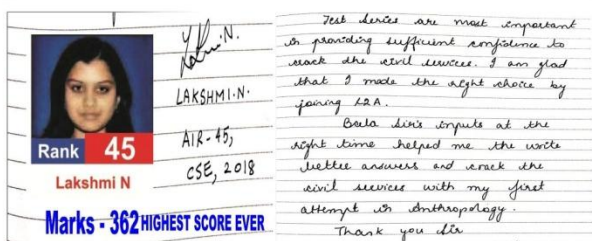 L N.
LAKSHMI.N.
AIR-45,
CSE, 2018
Rank 45
Lakshmi N
Marks - 362 HIGHEST SCORE EVER
Test Series are most important
in providing sufficient confidence to
crack the civil services. I am glad
that I made the right choice by
joining L2A.
Bala Sir's inputs at the
right time helped me the write
better answers and crack the
civil services with my first
attempt in Anthropology.
Thank you Sir